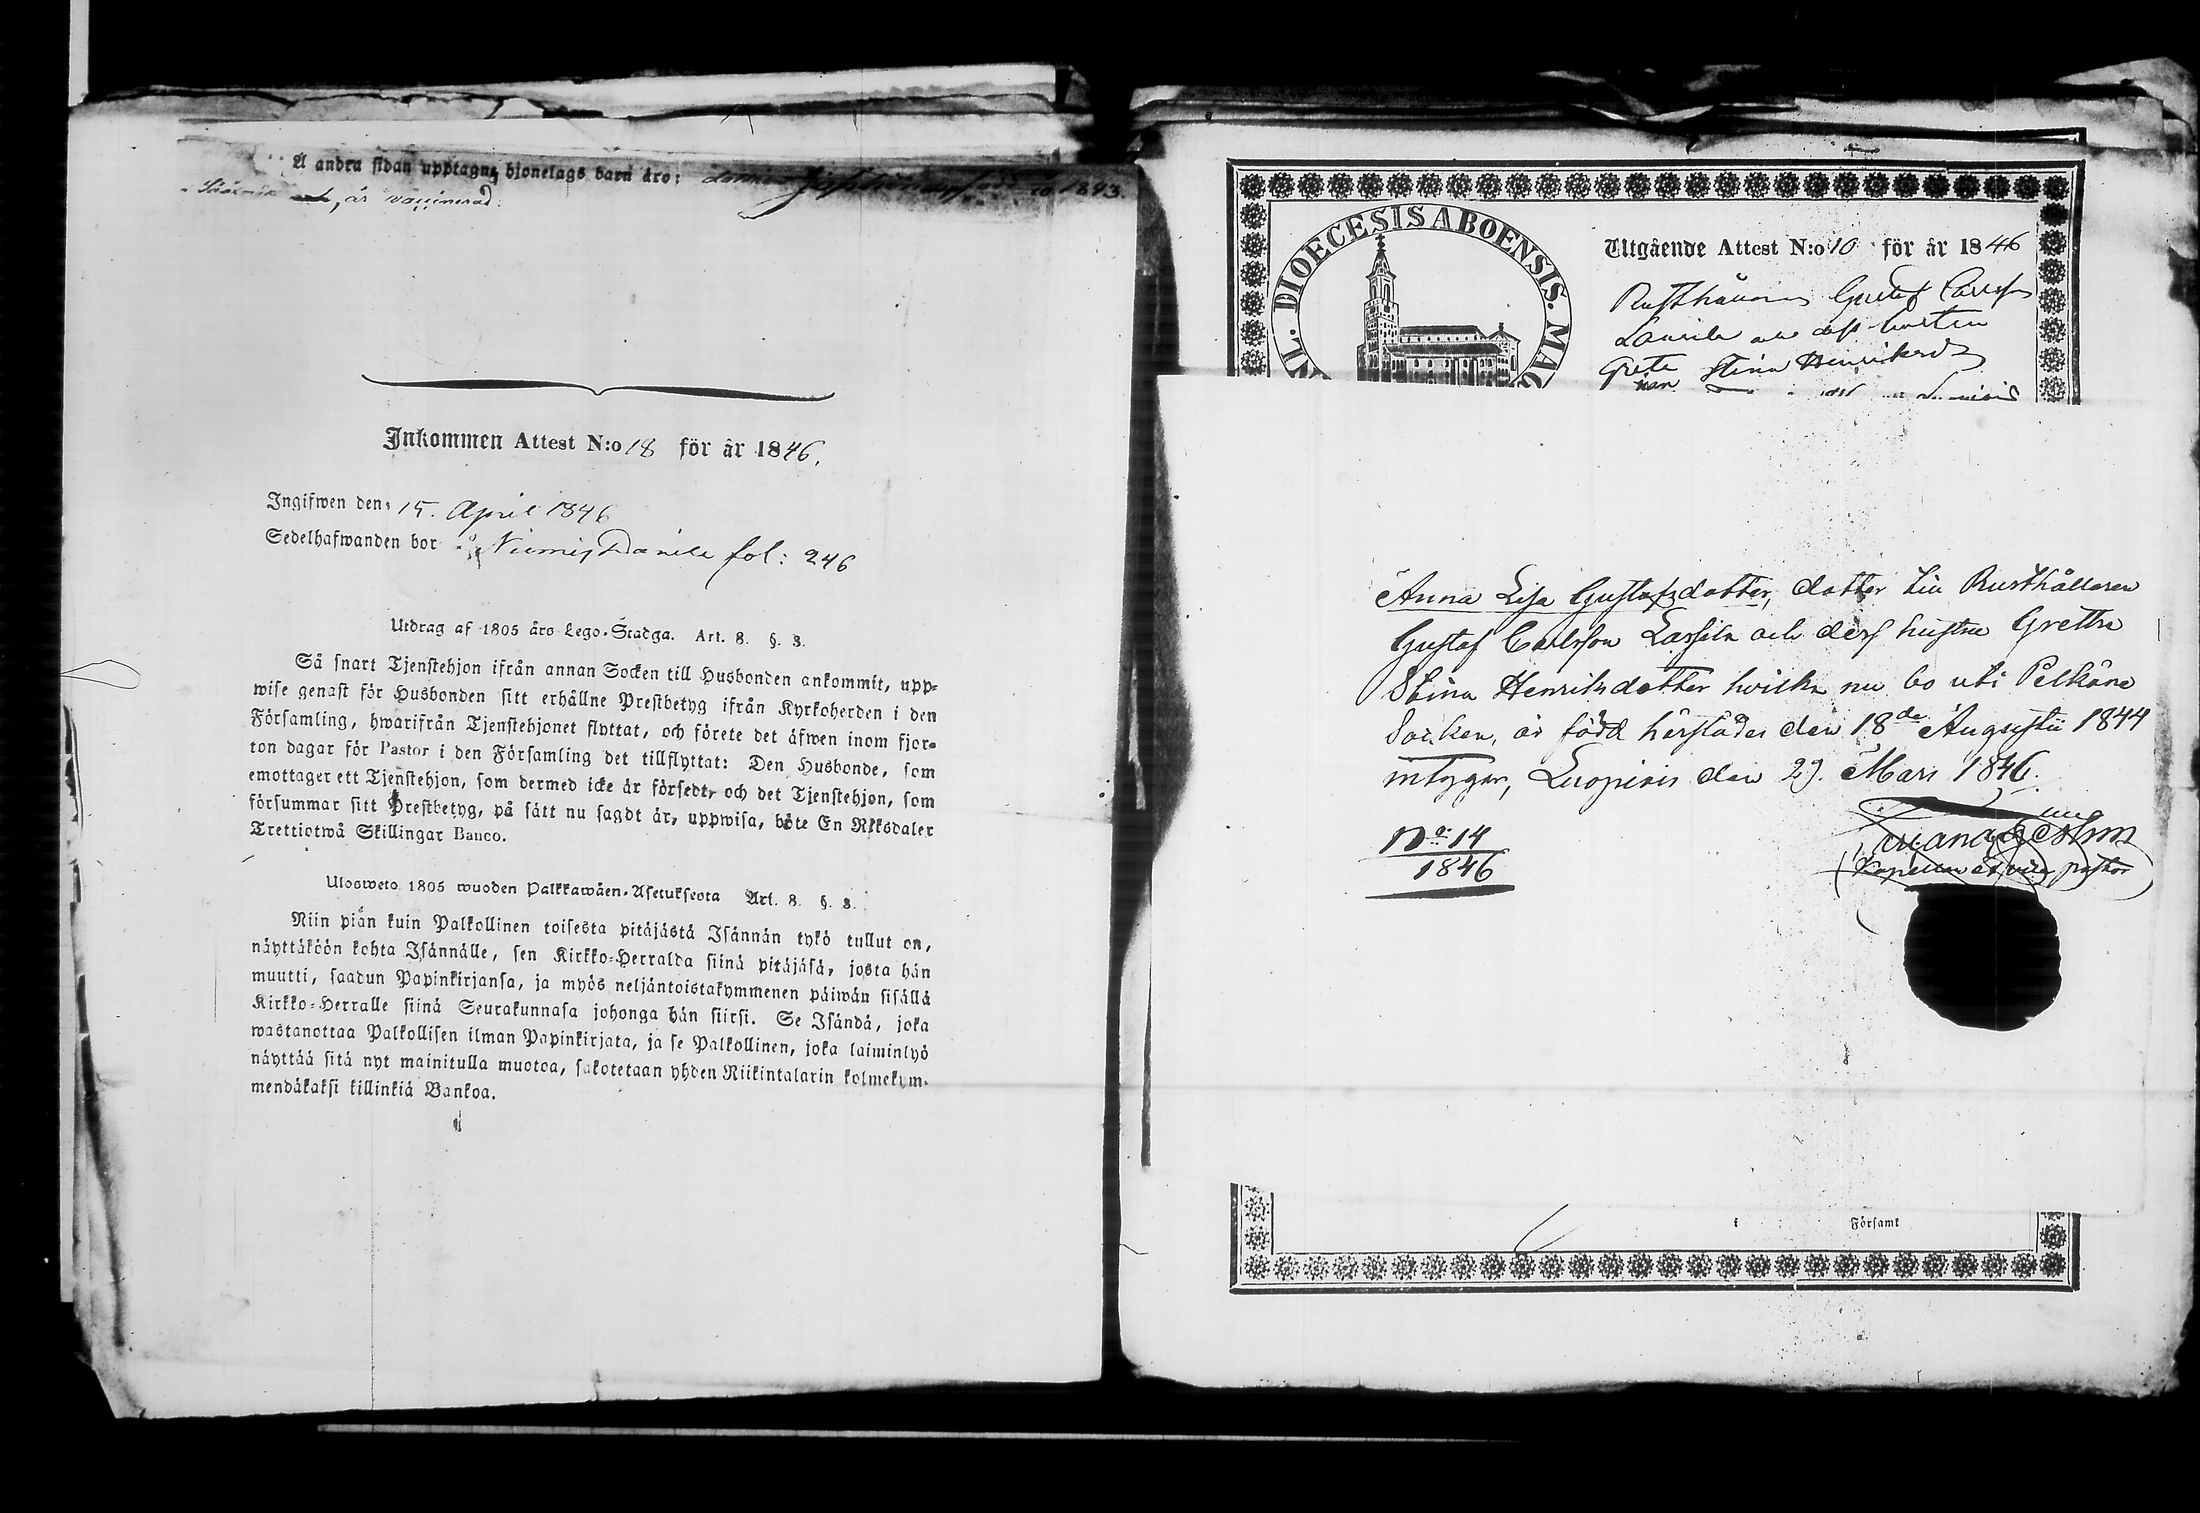 Å andra sidan upptagne hjonelags barn äro:
1843.
är vaccinerad.
Inkommen Attest N:o 18 för år 1846.
Ingifwen den: 15. April 1846
Sedelhafwanden bor fol: 246
Utdrag af 1805 års Lego-Stadga. Art. 8. §. 3.
Så snart Tjenstehjon ifrån annan Socken till Husbonden ankommit, upp-
wise genast för Husbonden sitt erhållne Prestbetyg ifrån Kyrkoherden i den
Församling, hwarifrån Tjenstehjonet flyttat, och förete det äfwen inom fjor-
ton dagar för Pastor i den Församling det tillflyttat: Den Husbonde, som
emottager ett Tjenstehjon, som dermed icke är försedt, och det Tjenstehjon, som
försummar sitt Prestbetyg, på sätt nu sagdt är, uppwisa, böte En Riksdaler
Trettiotwå Skillingar Banco.
Ulosweto 1805 wuoden Palkkawäen-Asetuksesta Art. 8. §. 3.
Niin piän kuin Palkollinen toisesta pitäjästä Isännän tykö tullut on,
näyttäköön kohta Isännälle, sen Kirkko-Herralda siinä pitäjäsä, josta hän
muutti, saadun Papinkirjansa, ja myös neljäntoistakymmenen päiwän sisällä
Kirkko-Herralle siinä Seurakunnasa johonga hän siirsi. Se Isändä, joka
wastanottaa Palkollisen ilman Papinkirjata, ja se Palkollinen, joka laiminlyö
näyttää sitä nyt mainitulla muotoa, sakotetaan yhden Riikintalarin kolmekym-
mendäkaksi killinkiä Bankoa.
DIOECESIS ABOENSIS. MAG
Utgående Attest N:o 10 för år 1846
Rusthållaren Gustaf Carlsson
Laurila och dess hustru
Greta Stina Henriksd:r
Anna Lisa Gustafsdotter, dotter till Rusthållaren
Gustaf Carlsson Lassila och dess hustru Gretha
Stina Henriksdotter hvilka nu bo uti Pelkäne
Socken, är född härstädes den 18de Augustii 1844
intygar, Luopiois den 29. Mars 1846.
No: 14
1846
Kapellan et vice pastor
i Församl